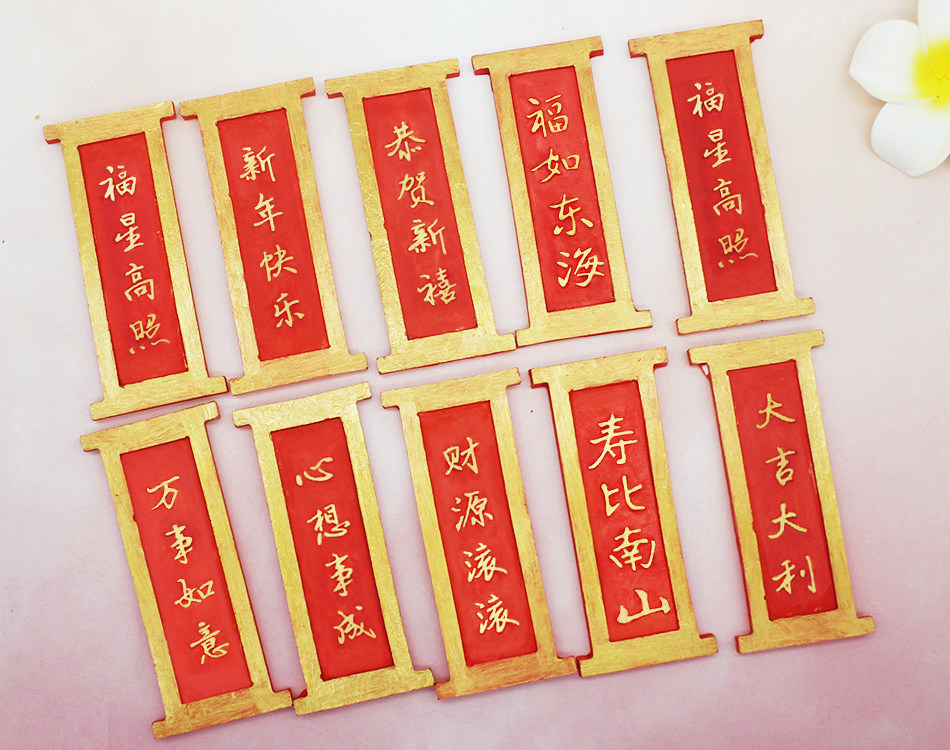 福星高照
新年快乐
恭贺新禧
福如东海
福星高照
万事如意
心想事成
财源滚滚
寿比南山
大吉大利